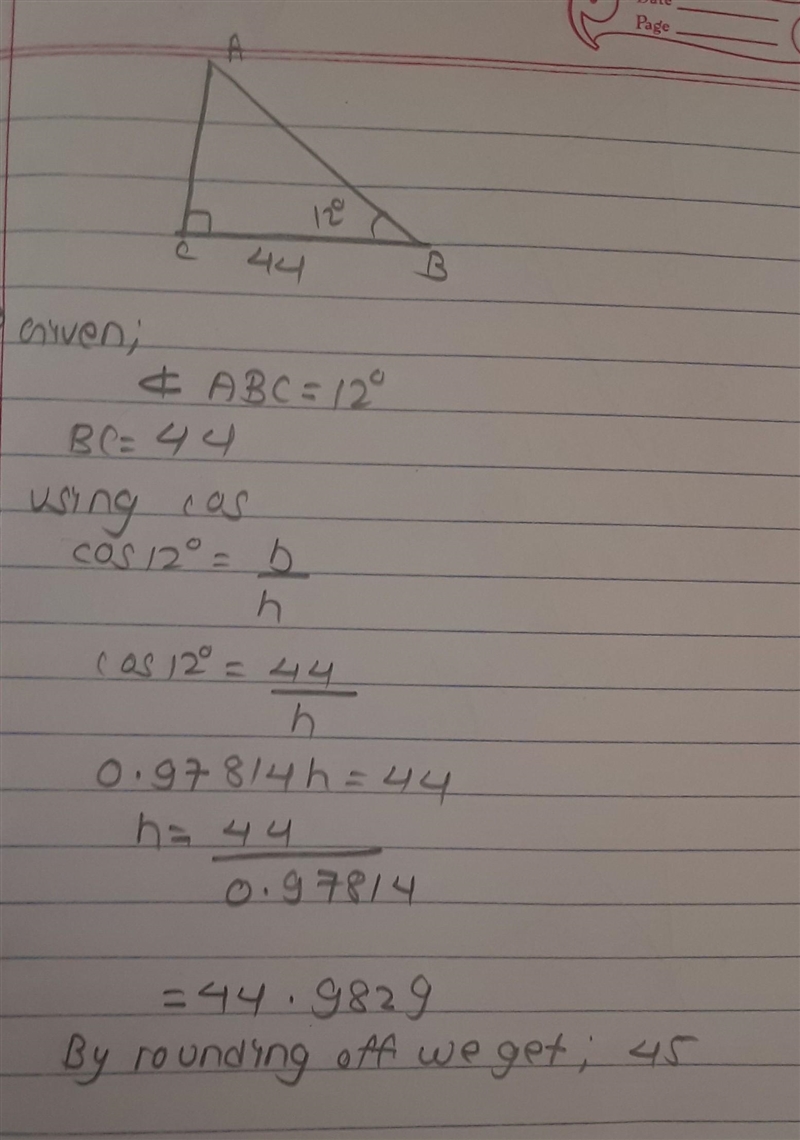 Date
Page
A
12°
C
44
B
Given;
∢ ABC = 12°
BC = 44
using cos
cos 12° = b/h
cos 12° = 44/h
0.97814h = 44
h = 44/0.97814
= 44.9829
By rounding off we get; 45